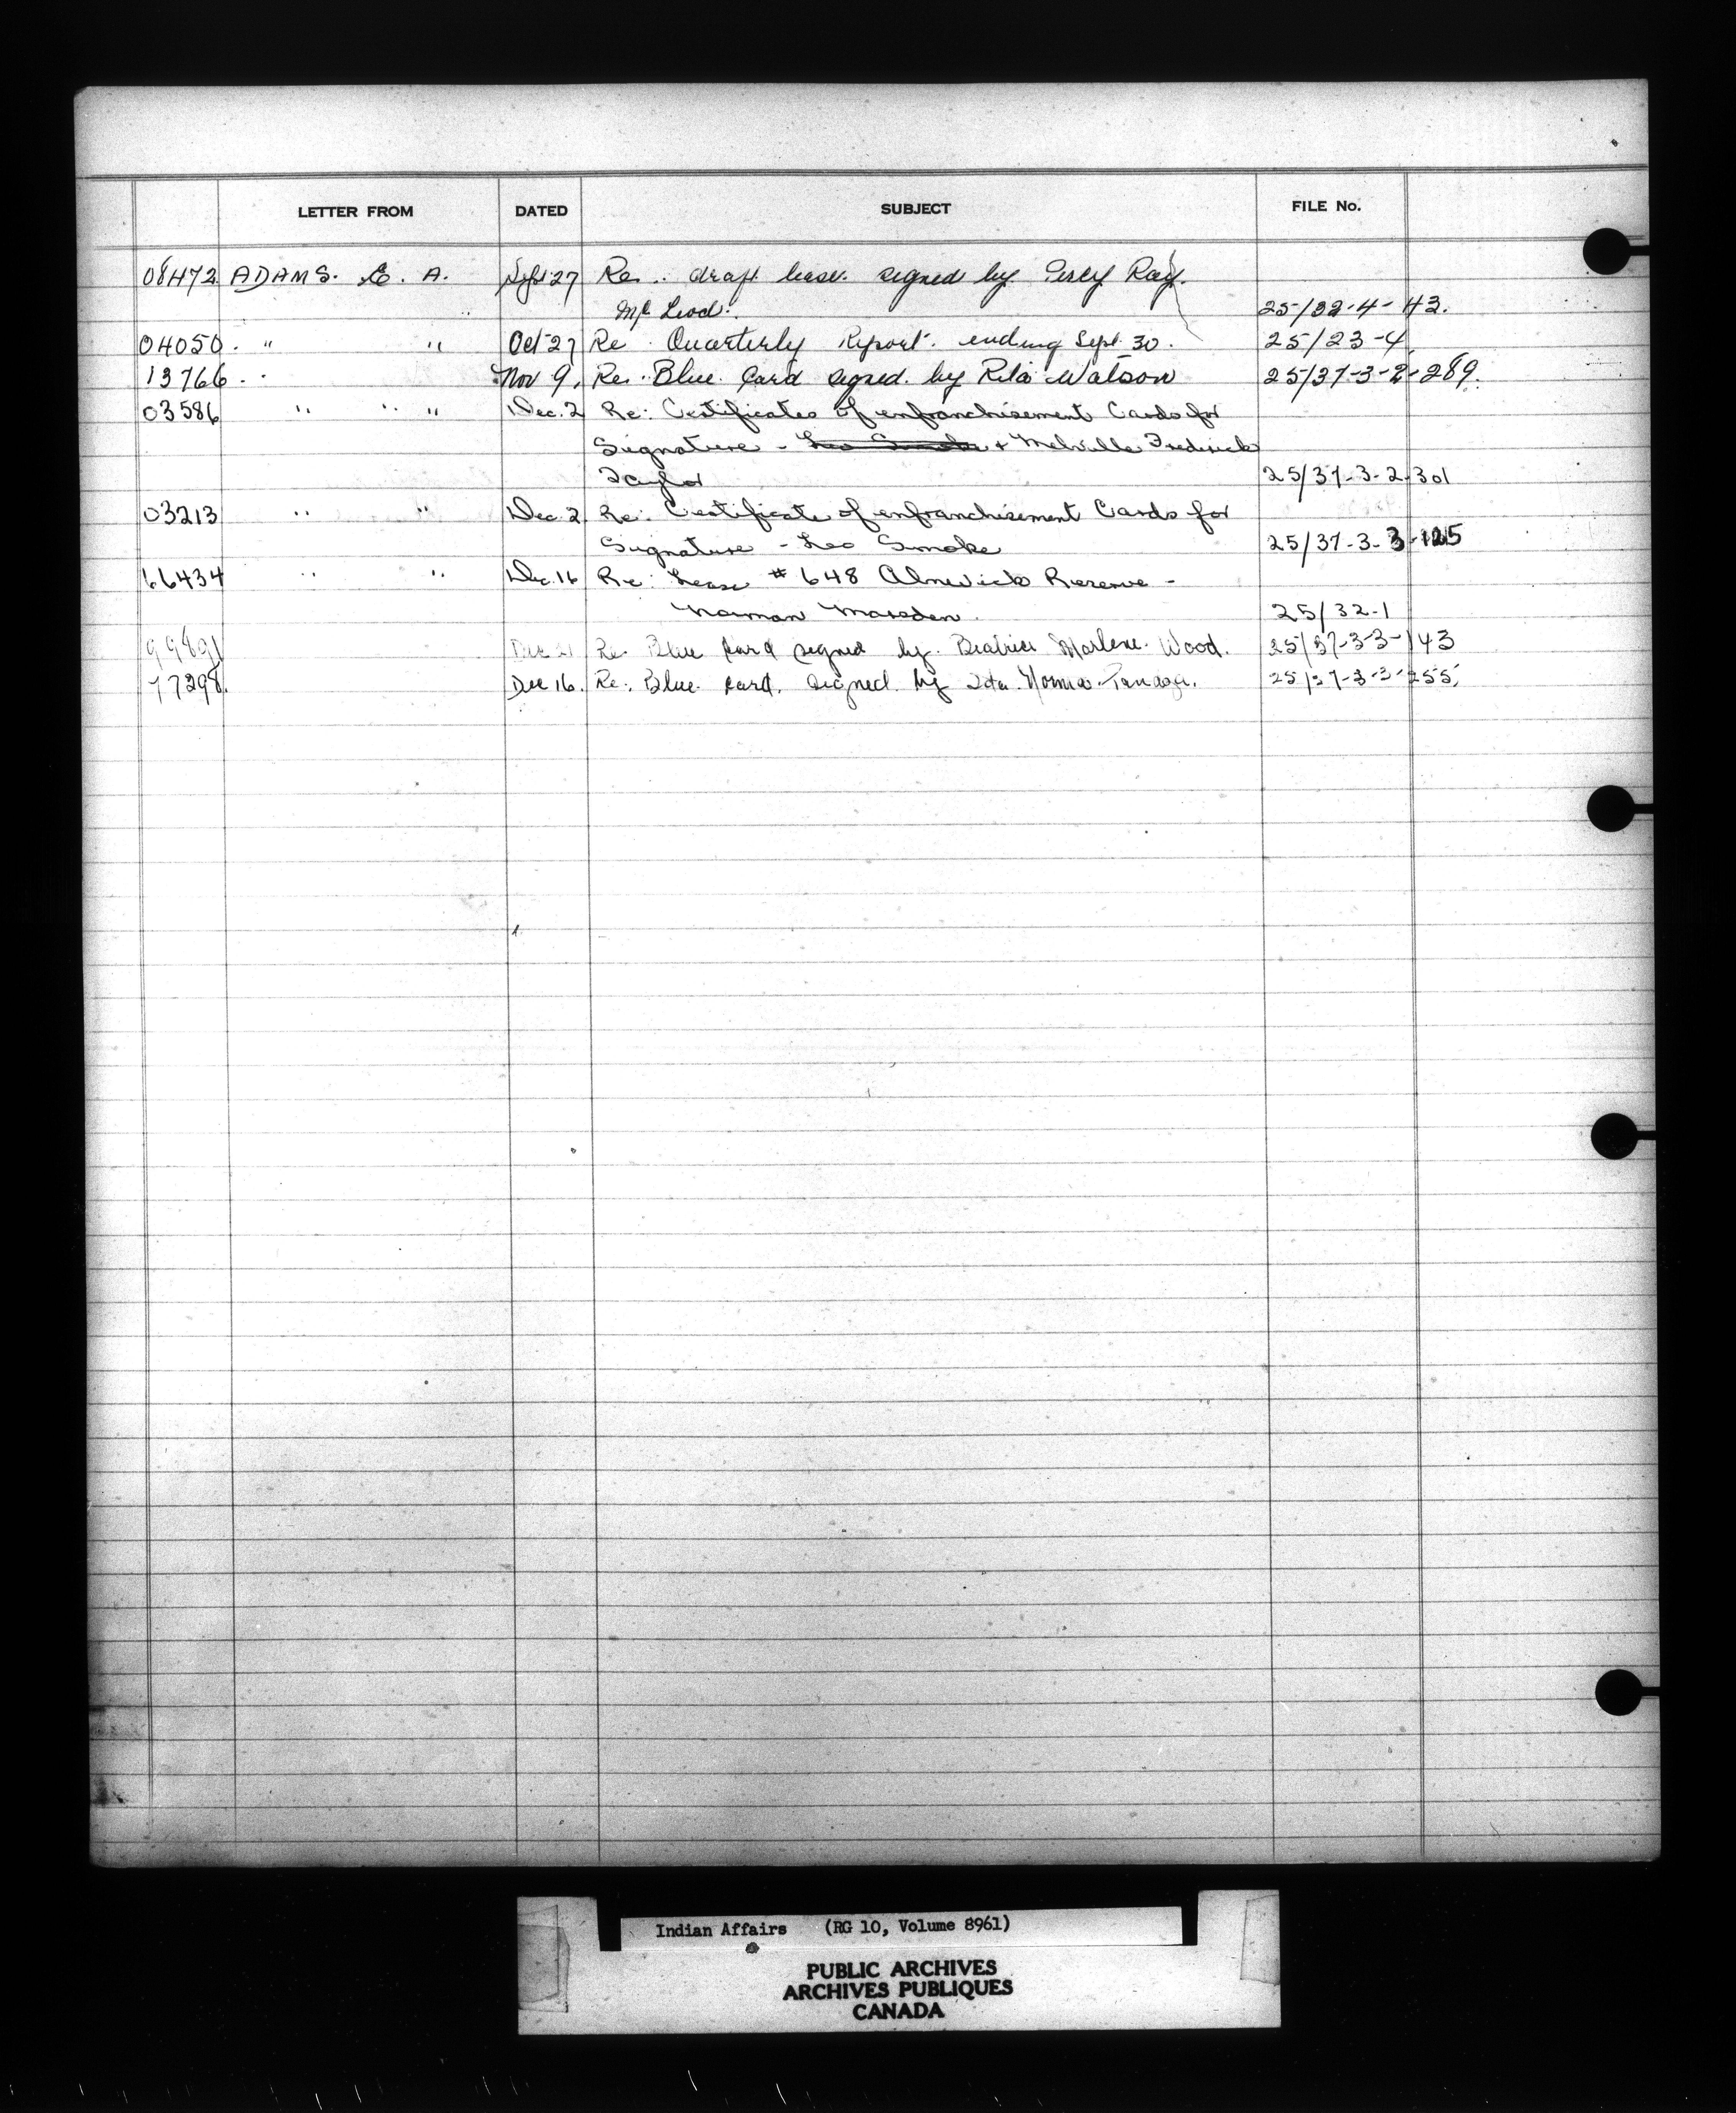 LETTER FROM DATED SUBJECT FILE No.
08472 ADAMS. E. A. Sept 27 Re. draft lease. signed by Percy Ray.
Mc Leod. 25/32-4-43.
04050. " " Oct 27 Re. Quarterly Report. ending Sept. 30. 25/23-4
13766. " Nov 9. Re. Blue Card signed. by Rita Watson 25/37-3-2-289.
03586 " " " Dec. 2 Re: Certificates of enfranchisement Cards for
Signature - Leo Smoke & Melville Frederick
Taylor 25/37-3-2-301
03213 " " Dec. 2 Re: Certificate of enfranchisement Cards for
Signature - Leo Smoke 25/37-3-3-125
66434 " " Dec. 16 Re: Lease # 648 Alnwick Reserve -
Norman Marsden. 25/32-1
99891 Dec 21 Re. Blue Card signed by. Beatrice Marlene. Wood. 25/37-3-3-143
77298. Dec 16. Re: Blue. Card. signed by Norma 25/37-3-3-255.
Indian Affairs (RG 10, Volume 8961)
PUBLIC ARCHIVES
ARCHIVES PUBLIQUES
CANADA